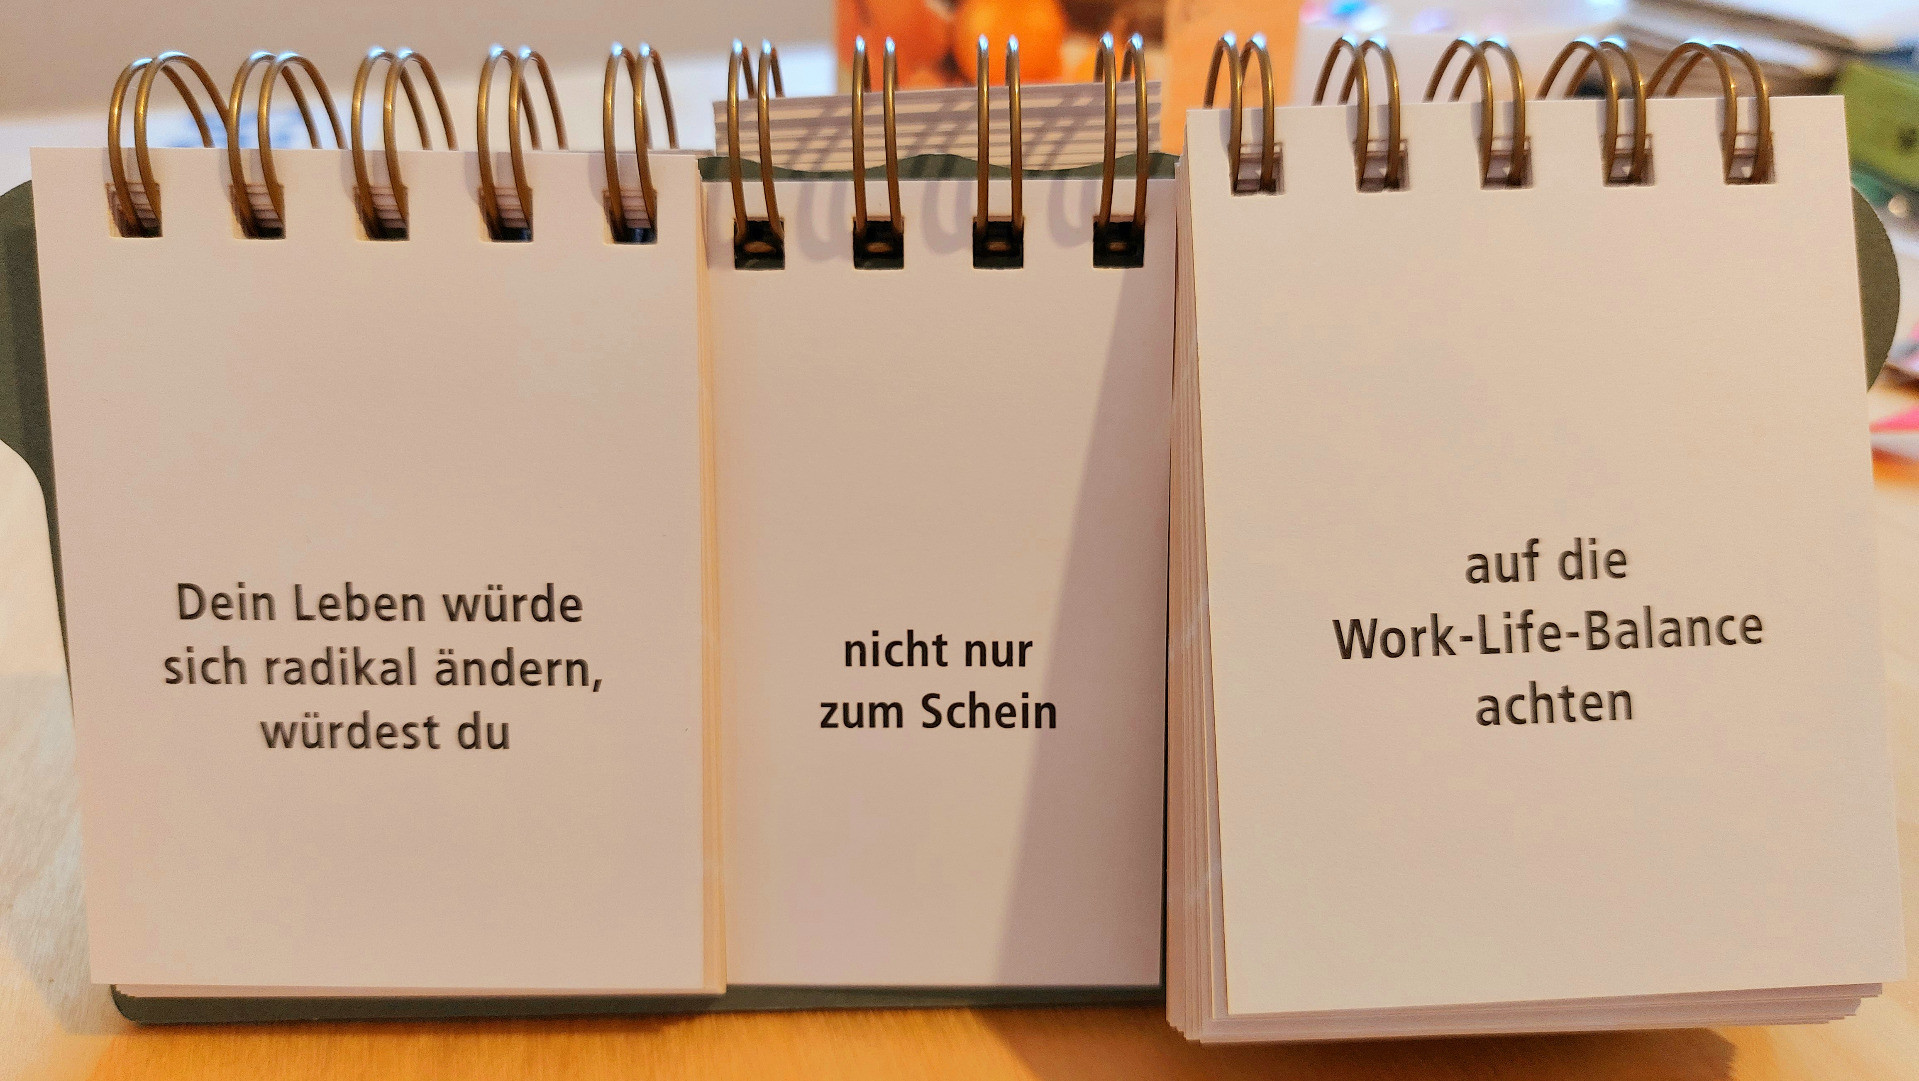 Dein Leben würde
sich radikal ändern,
würdest du
nicht nur
zum Schein
auf die
Work-Life-Balance
achten